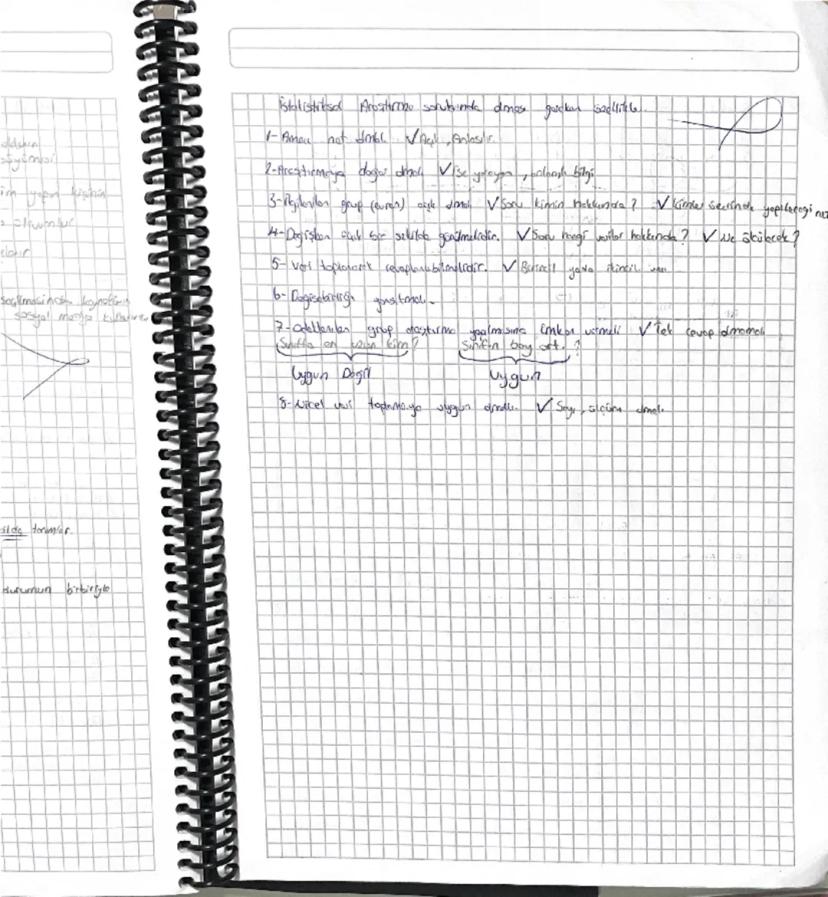 oldakın
im yapan kişinin
sosyal medya
silde tanımlar.
durumun birbiriyle
İstatistiksel Araştırma sorularında olması gereken özellikler.
1-Amacı net olmalı ✓Açık, Anlaşılır.
2-Araştırmaya değer olmalı ✓İşe yarayan, anlamlı bilgi
3-İlgilenilen grup (evren) açık olmalı ✓Soru kimin hakkında? ✓Kimler üzerinde yapılacağı
4-Değişken açık bir şekilde görülmelidir. ✓Soru hangi veriler hakkında? ✓Ne ölçülecek?
5-Veri toplanarak cevaplanabilmelidir. ✓Birincil yada ikincil veri
6-Değişebilirliği yansıtmalı.
7-Odaklanılan grup araştırma yapılmasına imkan vermeli ✓Tek cevap olmamalı
Sınıfta en uzun kim? Sınıfın boy ort.?
Uygun Değil Uygun
8-Nicel veri toplamaya uygun olmalı. ✓Sayı, ölçüm olmalı